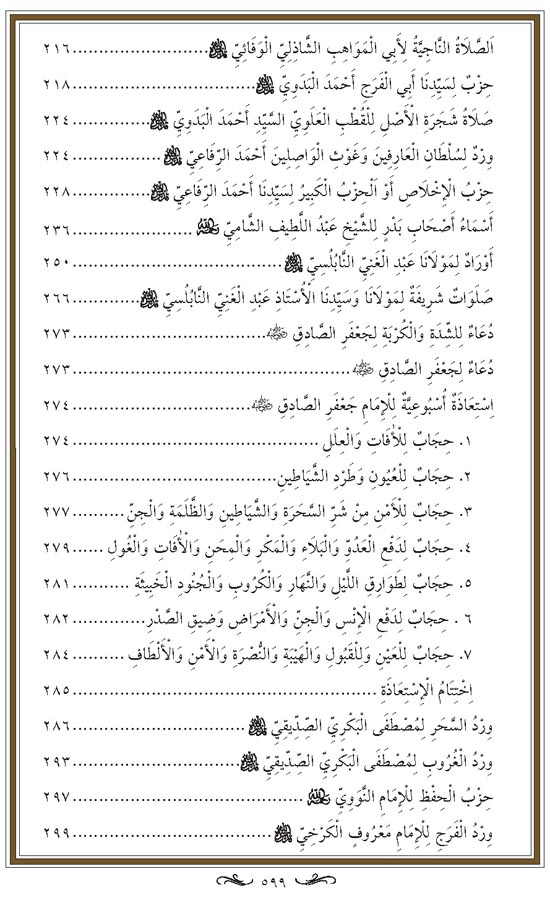 اَلصَّلَاةُ النَّاجِيَّةُ لِأَبِي الْمَوَاهِبِ الشَّاذِلِيِّ الْوَفَائِيِّ ..................... ٢١٦
حِزْبٌ لِسَيِّدِنَا أَبِي الْفَرَجِ أَحْمَدَ الْبَدَوِيِّ ..................... ٢١٨
صَلَاةُ شَجَرَةِ الْأَصْلِ لِلْقُطْبِ الْعَلَوِيِّ السَّيِّدِ أَحْمَدَ الْبَدَوِيِّ ............ ٢٢٤
وِرْدٌ لِسُلْطَانِ الْعَارِفِينَ وَغَوْثِ الْوَاصِلِينَ أَحْمَدَ الرِّفَاعِيِّ ............ ٢٢٤
حِزْبُ الْإِخْلَاصِ أَوْ اَلْحِزْبُ الْكَبِيرُ لِسَيِّدِنَا أَحْمَدَ الرِّفَاعِيِّ ............ ٢٢٨
أَسْمَاءُ أَصْحَابِ بَدْرٍ لِلشَّيْخِ عَبْدُ اللَّطِيفِ الشَّامِيِّ ..................... ٢٣٦
أَوْرَادٌ لِمَوْلَانَا عَبْدِ الْغَنِيِّ النَّابُلُسِيِّ ..................... ٢٥٠
صَلَوَاتٌ شَرِيفَةٌ لِمَوْلَانَا وَسَيِّدِنَا الْأُسْتَاذِ عَبْدِ الْغَنِيِّ النَّابُلُسِيِّ ............ ٢٦٦
دُعَاءٌ لِلشِّدَةِ وَالْكُرْبَةِ لِجَعْفَرِ الصَّادِقِ ..................... ٢٧٣
دُعَاءٌ لِجَعْفَرِ الصَّادِقِ ..................... ٢٧٣
اِسْتِعَاذَةٌ أُسْبُوعِيَّةٌ لِلْإِمَامِ جَعْفَرِ الصَّادِقِ ..................... ٢٧٤
١. حِجَابٌ لِلْأٰفَاتِ وَالْعِلَلِ ..................... ٢٧٤
٢. حِجَابٌ لِلْعُيُونِ وَطَرْدِ الشَّيَاطِينِ ..................... ٢٧٦
٣. حِجَابٌ لِلْأَمْنِ مِنْ شَرِّ السَّحَرَةِ وَالشَّيَاطِينِ وَالظَّلَمَةِ وَالْجِنِّ .......... ٢٧٧
٤. حِجَابٌ لِدَفْعِ الْعَدُوِّ وَالْبَلَاءِ وَالْمَكْرِ وَالْمِحَنِ وَالْأٰفَاتِ وَالْغُولِ ...... ٢٧٩
٥. حِجَابٌ لِطَوَارِقِ اللَّيْلِ وَالنَّهَارِ وَالْكُرُوبِ وَالْجُنُودِ الْخَبِيثَةِ ........... ٢٨١
٦. حِجَابٌ لِدَفْعِ الْإِنْسِ وَالْجِنِّ وَالْأَمْرَاضِ وَضِيقِ الصَّدْرِ .............. ٢٨٢
٧. حِجَابٌ لِلْعَيْنِ وَلِلْقَبُولِ وَالْهَيْبَةِ وَالنُّصْرَةِ وَالْأَمْنِ وَالْأَلْطَافِ ........... ٢٨٤
اِخْتِتَامُ الْإِسْتِعَاذَةِ ..................... ٢٨٥
وِرْدُ السَّحَرِ لِمُصْطَفَى الْبَكْرِيِّ الصِّدِّيقِيِّ ..................... ٢٨٦
وِرْدُ الْغُرُوبِ لِمُصْطَفَى الْبَكْرِيِّ الصِّدِّيقِيِّ ..................... ٢٩٣
حِزْبُ الْحِفْظِ لِلْإِمَامِ النَّوَوِيِّ ..................... ٢٩٧
وِرْدُ الْفَرَجِ لِلْإِمَامِ مَعْرُوفٍ الْكَرْخِيِّ ..................... ٢٩٩
٥٩٩